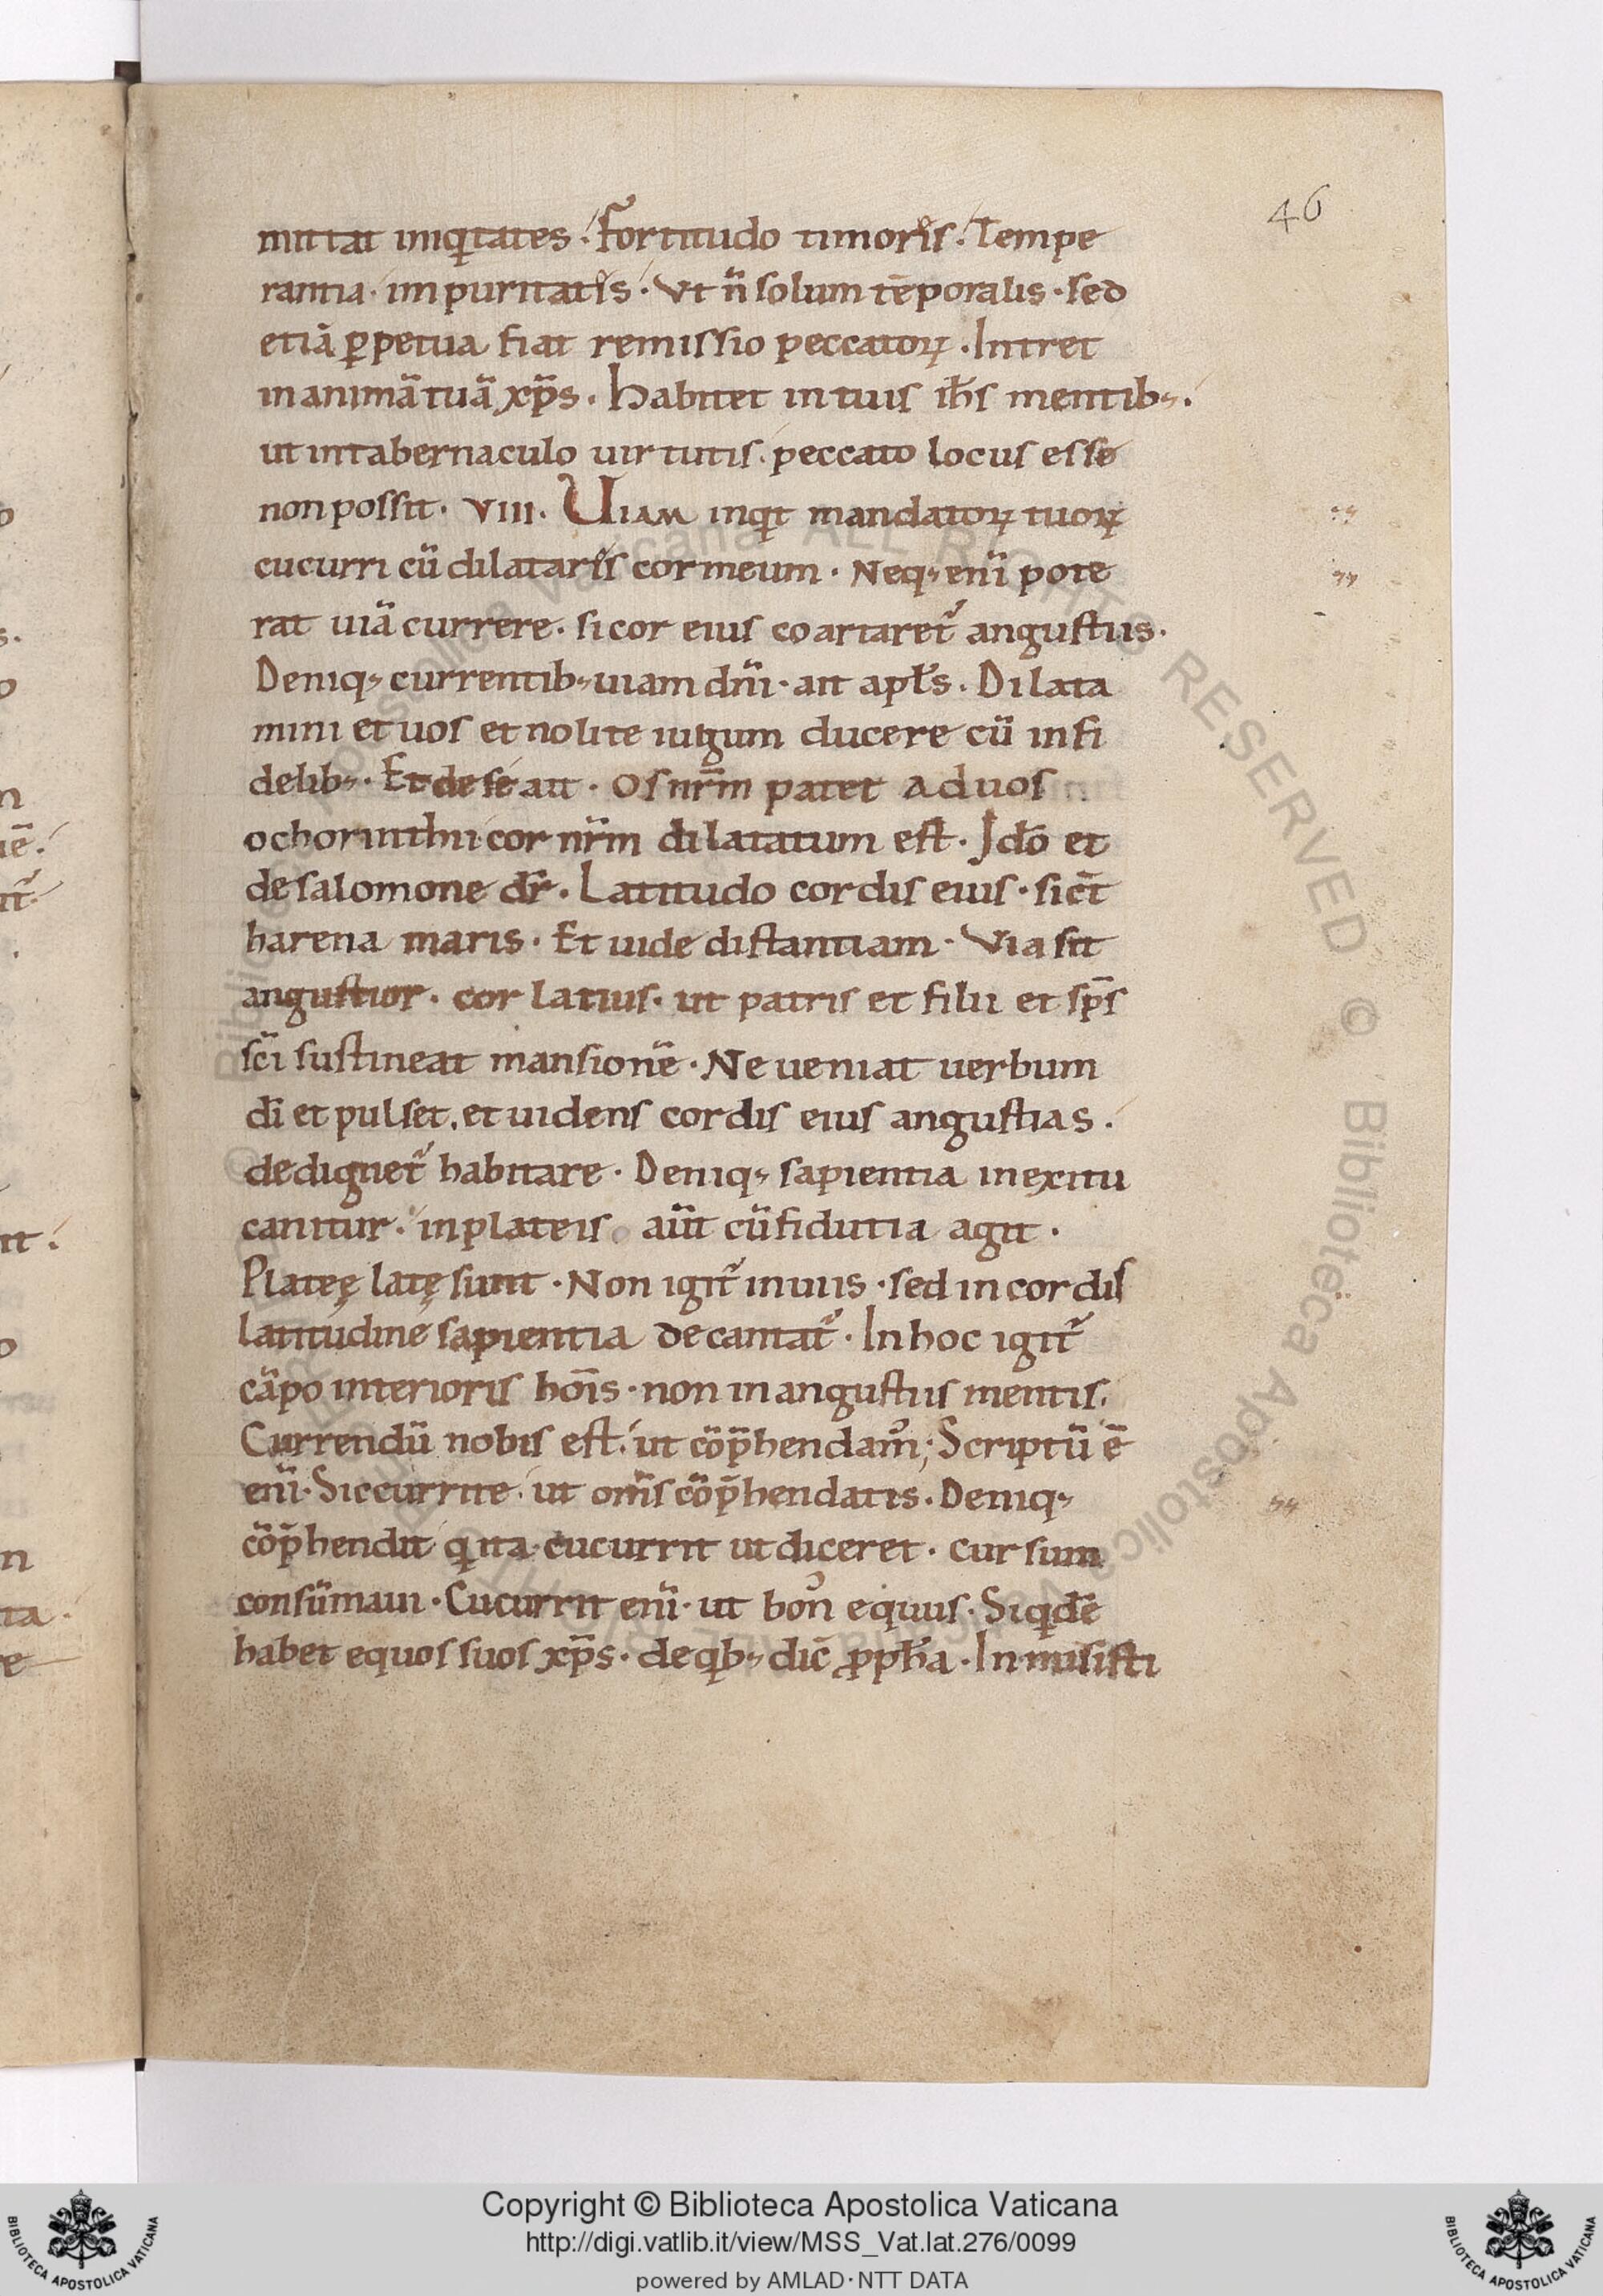 46
mittat iniq̇tates. Fortitudo timoris. Tempe
rantia. impuritatis. Vt n̄ solum tēporalis. sed
etiā ꝑpetua fiat remissio peccatoꝝ. Intret
in animā tuā xp̄s. Habitet in tuis ih̄s mentib;.
ut in tabernaculo uirtutis. peccato locus esse
non possit. VIII. Uiam inqͥt mandatoꝝ tuoꝝ
cucurri cū dilatariſ cor meum. Neq; eni̅ pote
rat uiā currere. si cor eius coartaret᷑ angustiis.
Deniq; currentib; uiam dn̄i. ait apłs. Dilata
mini et uos et nolite iuigum ducere cū infi
delib;. Et de se ait. Os nr̄m patet ad uos
o chorinthii cor nr̄m dilatatum est. Ido̅ et
de salomone dr̄. Latitudo cordis eius. sic̄t
harena maris. Et uide distantiam. Via sit
angustior. cor latius. ut patris et filii et sp̄s
sc̄i sustineat mansionē. Ne ueniat uerbum
dī et pulset. et uidens cordis eius angustias.
dedignet᷑ habitare. Deniq; sapientia in exitu
canitur. in plateis aūt cū fidutia agit.
Plateę latę sunt. Non igit᷑ in uiis. sed in cordis
latitudine sapientia decantat᷑. In hoc igit᷑
cāpo interioris hoīs. non in angustiis mentis.
Currendū nobis est. ut cōp̄hendamꝰ; Scriptū ē
eni̅. Sic currite. ut om̄s cōp̄hendatis. Deniq;
cōp̄hendit qͥ ita cucurrit ut diceret. cursum
consūmaui. Cucurrit eni̅. ut bonꝰ equus. Siqͥdē
habet equos suos xp̄s. de qͥb; dic̄ ꝓph̄a. Inmisisti
Copyright © Biblioteca Apostolica Vaticana
http://digi.vatlib.it/view/MSS_Vat.lat.276/0099
powered by AMLAD·NTT DATA
BIBLIOTECA APOSTOLICA VATICANA
BIBLIOTECA APOSTOLICA VATICANA